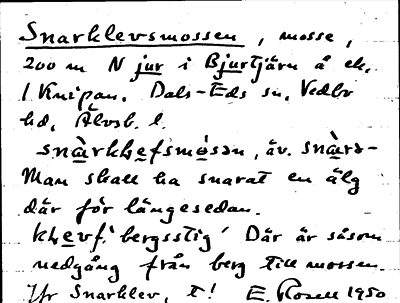 Snarklevsmossen, mosse,
200 m N jur i Bjurtjärn å ek.
1 Knipan. Dals-Eds sn, Vedbo
hd, Älvsb. l.
snàrkḷefsmo̲sən, äv. snàrs-
Man skall ha snarat en älg
där för längesedan.
kḷevf. 'bergsstig' Där är såsom
nedgång från berg till mossen.
Jfr Snarklev, t! E. Rosell 1950